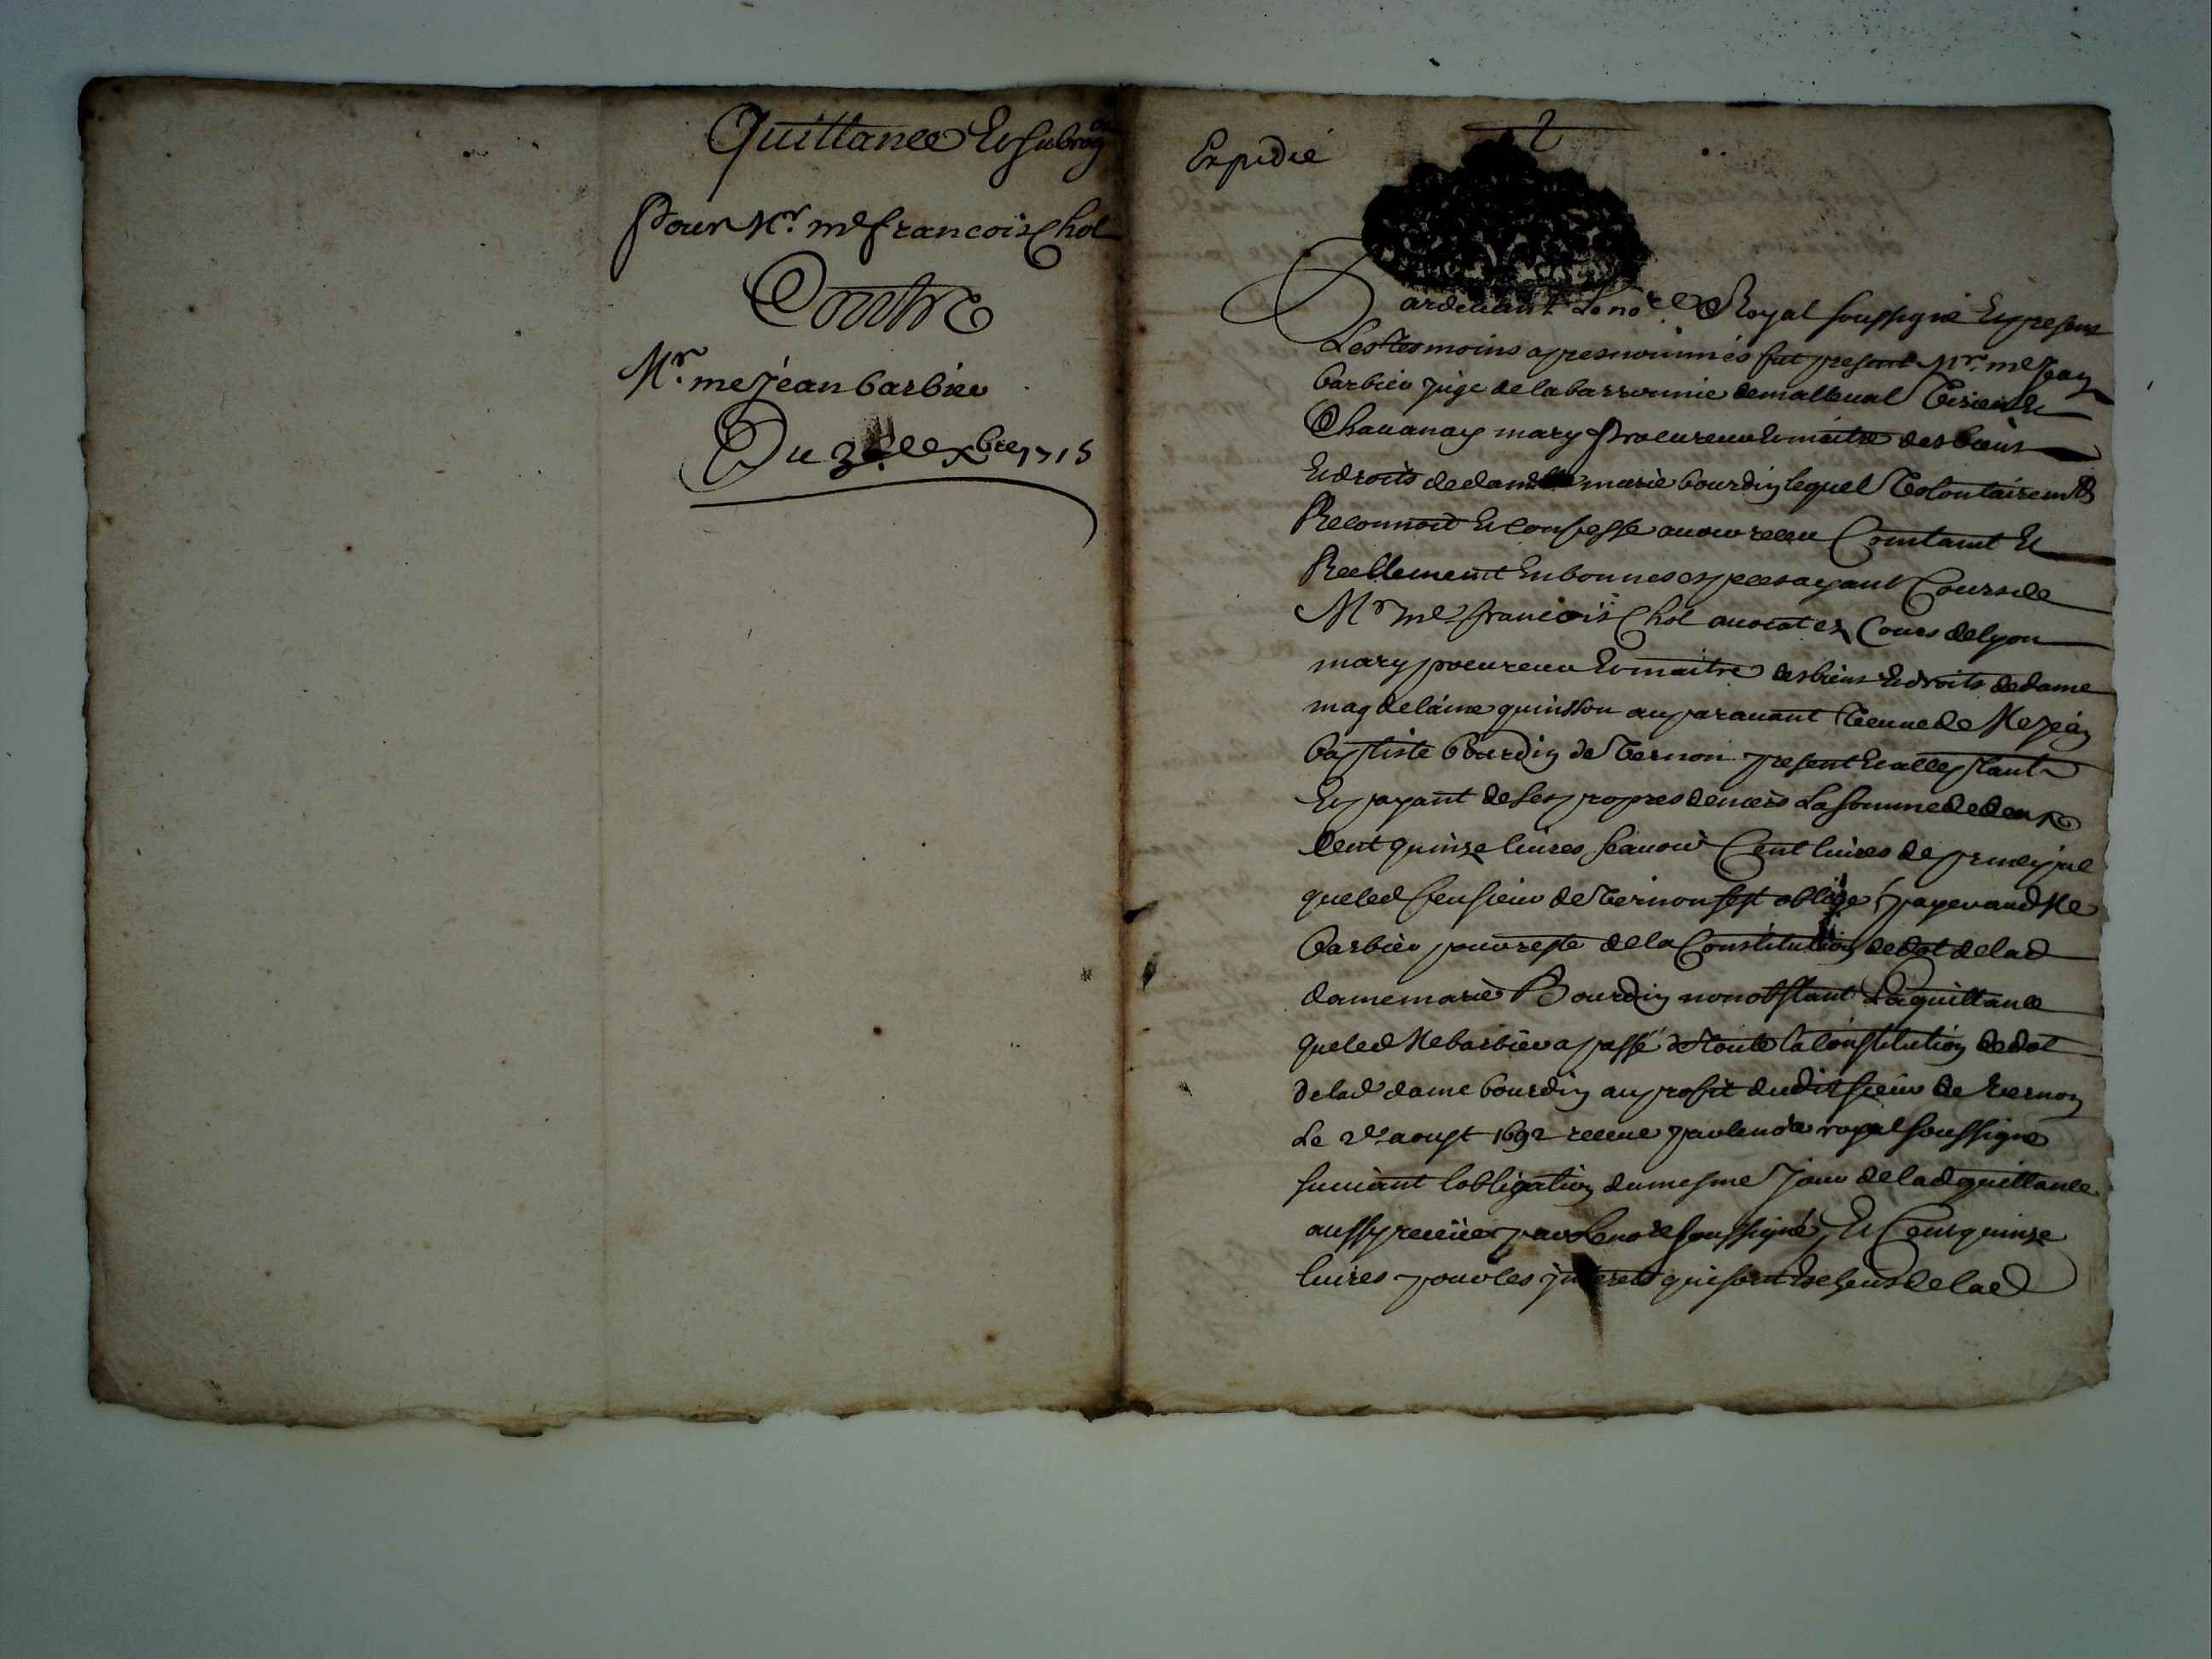 Quittance Et subrog.on
Pour Mr. me francois Chol
Contre
Mr. me Jean barbier
Du xbre 1715
Expedié
Pardevant le no.re Royal soussigné Et presens
Les tesmoins apres nommés fut present Mr. me Jean
barbier juge de la baronnie de malleval Et
Chavanay mary procureur Et maitre des biens
Et droits de marie bourdin lequel volontairemt
Reconnoit Et confesse avoir receu Comtant Et
Reellement En bonnes especes ayant Cours de
Mr me francois Chol avocat es Cours de lyon
mary procureur Et maitre des biens Et droits de dame
magdelaine quinsson auparavant veuve de Me jean
baptiste bourdin de vernon present Et acceptant
Et payant de ses propres deniers La somme de deux
Cent quinze livres scavoir Cent livres de principal
que led feu sieur de vernon sest obligé payer aud Me
barbier pour reste de la Constitution de dot de lad
dame marie Bourdin nonobstant La quittance
que led Me barbier a passé de toute la constitution de dot
de lad dame bourdin au profit dudit sieur de vernon
Le 2e aoust 1692 receue par le no.re royal soussigné
suivant lobligation du mesme Jour de lad quittance
aussy receüe par Le no.re soussigné Et Cent quinze
livres pour les jnterets qui sont Escheus de lad